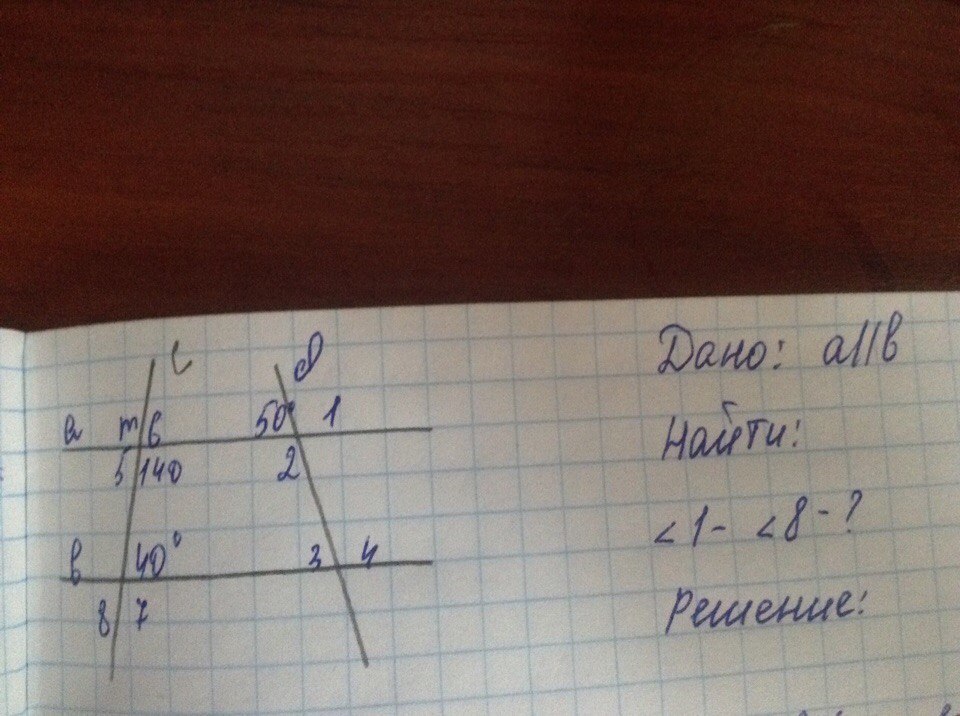 c d
a m 6 50° 1
5 140 2
b 40° 3 4
8 7
Дано: a||b
Найти:
<1- <8-?
Решение: